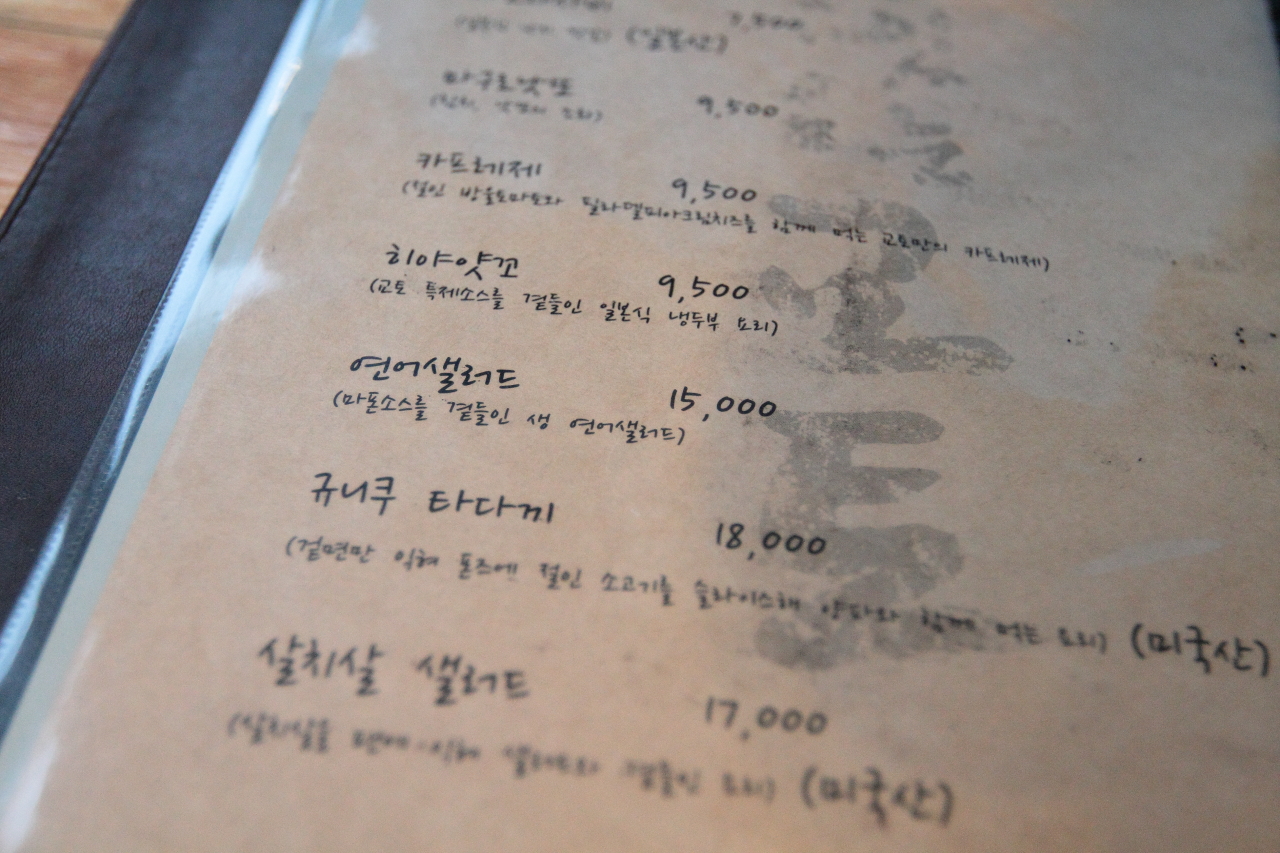 (일본산)
마구로낫또 9,500
카프레제 9,500
(절인 방울토마토와 필라델피아크림치즈를 함께 먹는 교토만의 카프레제)
히야얏꼬 9,500
(교토 특제소스를 곁들인 일본식 냉두부 요리)
연어샐러드 15,000
(마폰소스를 곁들인 생 연어샐러드)
규니쿠 타다끼 18,000
(겉면만 익혀 폰즈에 절인 소고기를 슬라이스해 양파와 함께 먹는 요리) (미국산)
살치살 샐러드 17,000
(살치살을 팬에 익혀 샐러드와 곁들인 요리) (미국산)